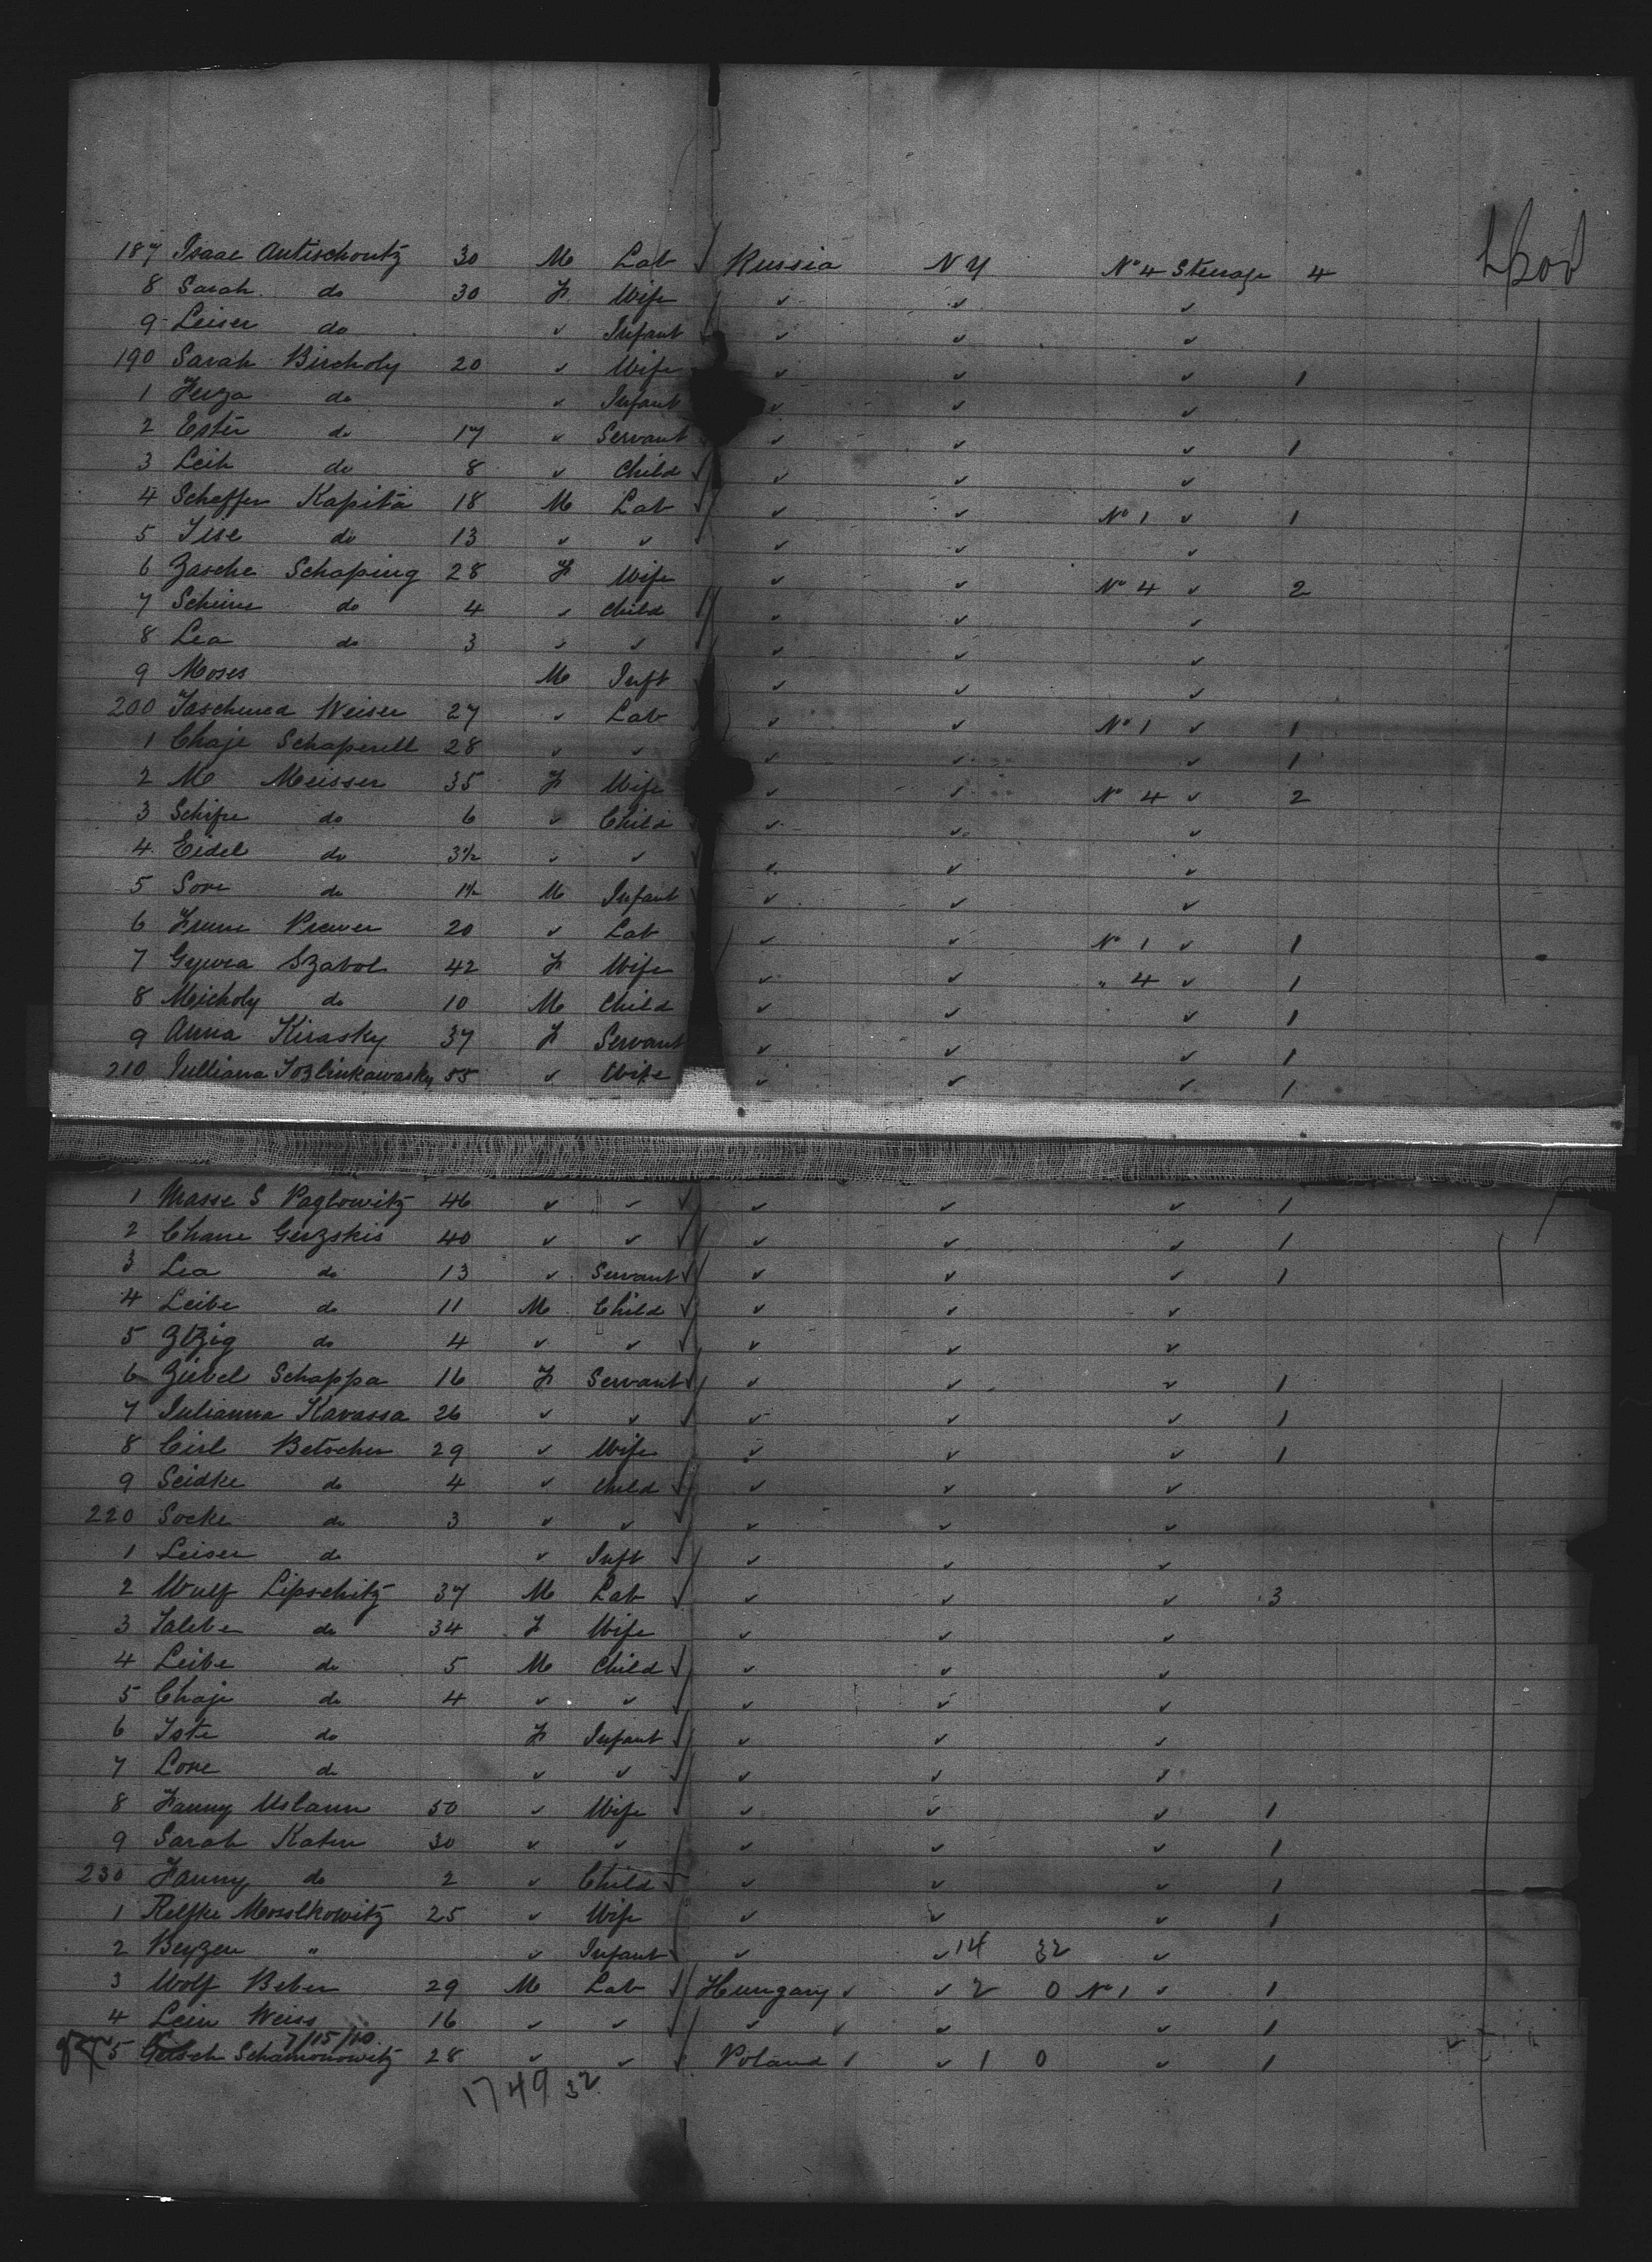 187 Isaac Antischoutz 30 M Lab Russia N Y Nº 4 Steerage 4
8 Sarah do 30 F Wife ✓ ✓ ✓
9 Leiser do ✓ Infant ✓ ✓ ✓
190 Sarah Bircholy 20 ✓ Wife ✓ ✓ ✓ 1
1 do ✓ Infant ✓ ✓ ✓
2 Ester do 17 ✓ Servant ✓ ✓ ✓ 1
3 Leih do 8 ✓ Child ✓ ✓ ✓
4 Scheffer Kapita 18 M Lab ✓ ✓ Nº 1 ✓ 1
5 do 13 ✓ ✓ ✓ ✓ ✓
6 Zasche Schaping 28 F Wife ✓ ✓ Nº 4 ✓ 2
7 do 4 ✓ Child ✓ ✓ ✓
8 Lea do 3 ✓ ✓ ✓ ✓ ✓
9 Moses M Inft ✓ ✓ ✓
200 Weiser 27 ✓ Lab ✓ ✓ Nº 1 ✓ 1
1 Chaje Schaperell 28 ✓ ✓ ✓ ✓ ✓ 1
2 M Meisser 35 F Wife ✓ ✓ Nº 4 ✓ 2
3 Schifre do 6 ✓ Child ✓ ✓ ✓
4 Eidel do 3½ ✓ ✓ ✓ ✓ ✓
5 Sore do 1½ M Infant ✓ ✓ ✓
6 20 ✓ Lab ✓ ✓ Nº 1 ✓ 1
7 Szabol 42 F Wife ✓ ✓ " 4 ✓ 1
8 Meicholy do 10 M Child ✓ ✓ ✓ 1
9 Anna Kirasky 37 F Servant ✓ ✓ ✓ 1
210 Julliana 55 ✓ Wife ✓ ✓ ✓ 1
1 Masse S Paglowitz 46 ✓ ✓ ✓ ✓ ✓ 1
2 Chane Gerzskis 40 ✓ ✓ ✓ ✓ ✓ 1
3 Lea do 13 ✓ Servant ✓ ✓ ✓ 1
4 Leibe do 11 M Child ✓ ✓ ✓
5 do 4 ✓ ✓ ✓ ✓ ✓
6 Zubel Schappa 16 F Servant ✓ ✓ ✓ 1
7 Julianna Kavassa 26 ✓ ✓ ✓ ✓ ✓ 1
8 Cirl Betscher 29 ✓ Wife ✓ ✓ ✓ 1
9 Seidke do 4 ✓ Child ✓ ✓ ✓
220 Socke do 3 ✓ ✓ ✓ ✓ ✓
1 Leiser do ✓ Inft ✓ ✓ ✓
2 Wulf Lipschitz 37 M Lab ✓ ✓ ✓ 3
3 do 34 F Wife ✓ ✓ ✓
4 Leibe do 5 M Child ✓ ✓ ✓
5 Chaje do 4 ✓ ✓ ✓ ✓ ✓
6 Iste do F Infant ✓ ✓ ✓
7 Lore do ✓ ✓ ✓ ✓ ✓
8 Fanny Uslann 50 ✓ Wife ✓ ✓ ✓ 1
9 Sarah Katen 30 ✓ ✓ ✓ ✓ ✓ 1
230 Fanny do 2 ✓ Child ✓ ✓ ✓ 1
1 Relfke 25 ✓ Wife ✓ ✓ ✓ 1
2 Beyzen " ✓ Infant ✓ ✓ 14 32 ✓
3 Wolf Beber 29 M Lab Hungary ✓ 2 0 Nº 1 ✓ 1
4 Lein Weiss 16 ✓ ✓ ✓ ✓ ✓ 1
7/15/10
5 Schamonowitz 28 ✓ ✓ Poland ✓ 1 0 ✓ 1
1749 32